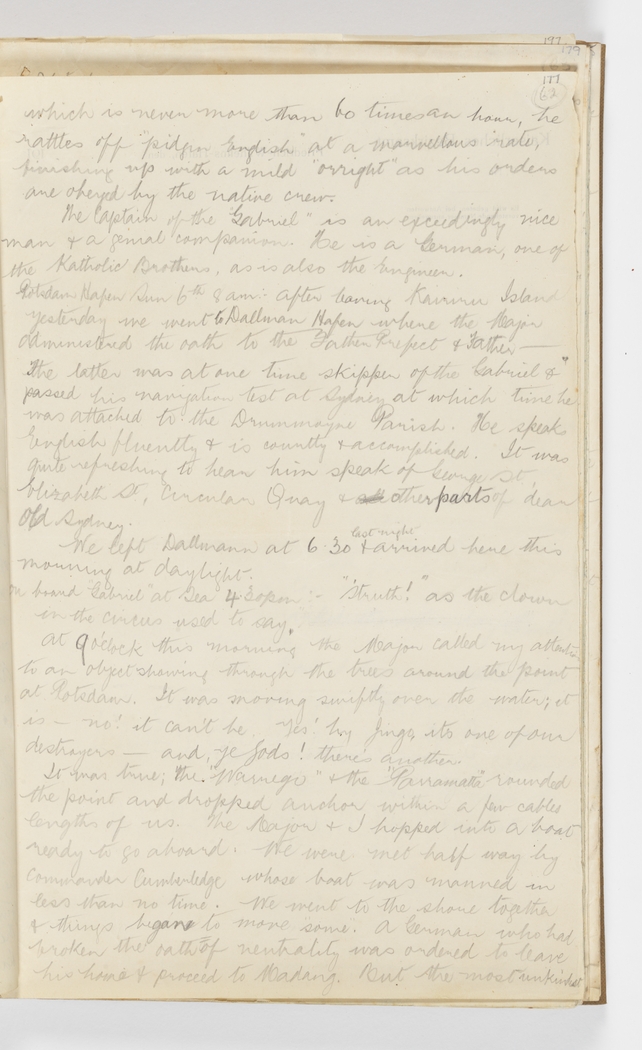 197
179
177
62
which is never more than 60 times an hour, he
rattles off "pidgin English" at a marvellous rate,
finishing up with a mild "orright" as his orders
are obeyed by the native crew.
The Captain of the Gabriel" is an exceedingly nice
man & a genial companion. He is a German, one of
the Katholic Brothers, as is also the Engineer.
Potsdam Hafen Sun 6th 8 am: After leaving Kairiru Island
yesterday we went to Dallman Hafen where the Major
administered the oath to the Father Prefect & Father —
The latter was at one time skipper of the Gabriel &
passed his navigation test at Sydney at which time he
was attached to the Drummoyne Parish. He speaks
English fluently & is courtly & accomplished. It was
quite refreshing to hear him speak of George St,
Elizabeth St, Circular Quay & other parts of dear
Old Sydney.
We left Dallmann at 6.30 last night & arrived here this
morning at daylight.
On board "Gabriel" at Sea 4.30 pm :- "Struth!" as the clown
in the circus used to say.
At 9 o'clock this morning the Major called my attention
to an object showing through the trees around the point
at Potsdam. It was moving swiftly over the water; it
is — no! it can't be. Yes! by Jingo its one of our
destroyers — and, ye Gods! there's another.
It was true; The "Warrego" & the "Parramatta" rounded
the point and dropped anchor within a few cables
lengths of us. The Major & I hopped into a boat
ready to go aboard. We were met half way by
Commander Cumberledge whose boat was manned in
less than no time. We went to the shore together
& things began to move some. A German who had
broken the oath of neutrality was ordered to leave
his home & proceed to Madang. But the most unkindest